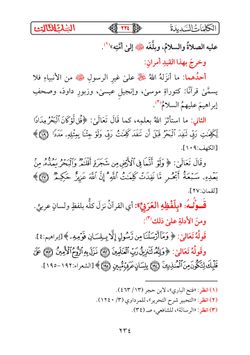 الكلمات السديدة
٢٣٤
عليه الصلاةُ والسلامُ، وبلَّغه ﷺ إلىٰ أمَّتِه»(١).
وخرجَ بهذا القيدِ أمرانِ:
أحدُهما: ما أنزلَهُ اللهُ ﷻ علىٰ غيرِ الرسولِ ﷺ من الأنبياءِ فلا
يسمَّىٰ قرآنًا: كتوراةِ موسىٰ، وإنجيلِ عيسىٰ، وزبورِ داودَ، وصحفِ
إبراهيمَ عليهمُ السلامُ(٢).
الثاني: ما استأثرَ اللهُ بعلمِهِ، كما قالَ تعالىٰ: ﴿قُل لَّوْ كَانَ ٱلْبَحْرُ مِدَادًا
لِّكَلِمَٰتِ رَبِّى لَنَفِدَ ٱلْبَحْرُ قَبْلَ أَن تَنفَدَ كَلِمَٰتُ رَبِّى وَلَوْ جِئْنَا بِمِثْلِهِۦ مَدَدًا ۝﴾
[الكهف:١٠٩].
وقالَ تعالىٰ: ﴿وَلَوْ أَنَّمَا فِى ٱلْأَرْضِ مِن شَجَرَةٍ أَقْلَٰمٌ وَٱلْبَحْرُ يَمُدُّهُۥ مِنۢ
بَعْدِهِۦ سَبْعَةُ أَبْحُرٍ مَّا نَفِدَتْ كَلِمَٰتُ ٱللَّهِ إِنَّ ٱللَّهَ عَزِيزٌ حَكِيمٌ ۝﴾
[لقمان:٢٧].
قـولُـــه: «بِلَفْظِهِ العَرَبِيِّ»: أي القرآنُ نزلَ كلُّه بلفظٍ ولسانٍ عربيٍّ.
ومنَ الأدلةِ علىٰ ذلكَ(٣):
قولُهُ تعالىٰ: ﴿وَمَآ أَرْسَلْنَا مِن رَّسُولٍ إِلَّا بِلِسَانِ قَوْمِهِۦ﴾ [إبراهيم:٤].
وقولُهُ تعالىٰ: ﴿وَإِنَّهُۥ لَتَنزِيلُ رَبِّ ٱلْعَٰلَمِينَ ۝ نَزَلَ بِهِ ٱلرُّوحُ ٱلْأَمِينُ ۝ عَلَىٰ
قَلْبِكَ لِتَكُونَ مِنَ ٱلْمُنذِرِينَ ۝ بِلِسَانٍ عَرَبِىٍّ مُّبِينٍ ۝﴾ [الشعراء:١٩٢-١٩٥].
(١) انظر: «فتح الباري»، لابن حجر (١٣/ ٤٦٣).
(٢) انظر: «التحبير شرح التحرير»، للمرداوي (٣/ ١٢٤٠).
(٣) انظر: «الرسالة»، للشافعي، صـ (٣٤).
٢٣٤